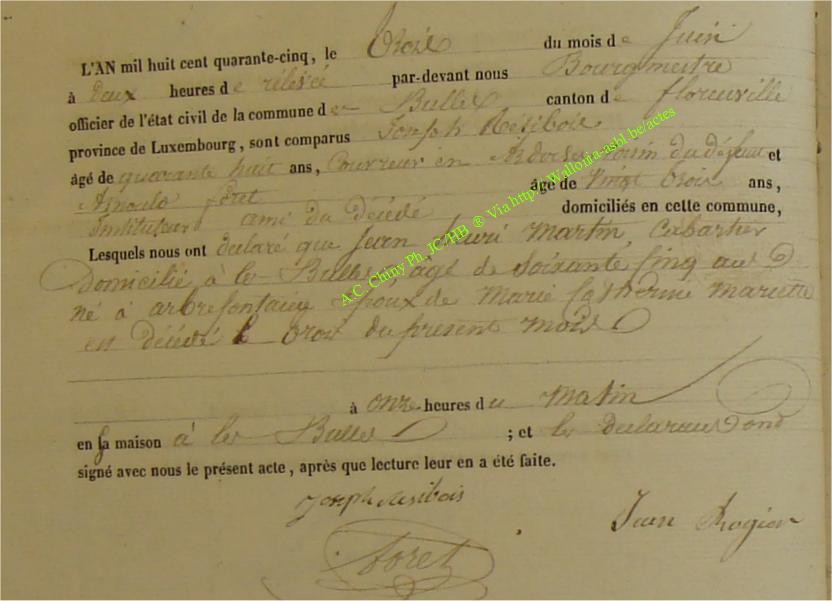 L'AN mil huit cent quarante-cinq, le trois du mois de Juin
à deux heures de relevé par-devant nous Bourgmestre
officier de l'état civil de la commune de Les Bulles canton de florenville
province de Luxembourg, sont comparus Joseph Résibois
âgé de quarante huit ans, Couvreur en Ardoise voisin du défunt et
Arnould foret âgé de vingt trois ans,
Instituteur ami du décédé domiciliés en cette commune,
Lesquels nous ont declaré que Jean henri Martin, Cabartier
Domicilié à les Bulles, agé de soixante cinq ans
né à arbrefontaine Epoux de Marie Catherine Mariette
est décédé le trois du present mois
à onze heures du Matin
en sa maison à les Bulles ; et les declarans ond
signé avec nous le présent acte, après que lecture leur en a été faite.
Joseph Resibois
Jean Rogier
foret
A.C. Chiny Ph. JC/HB ® Via http://Wallonia-asbl.be/actes